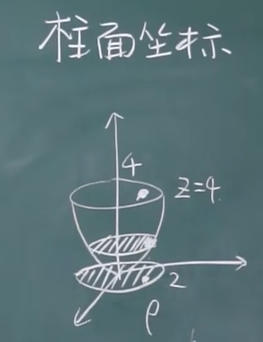 柱面坐标
4
z=4
2
ρ